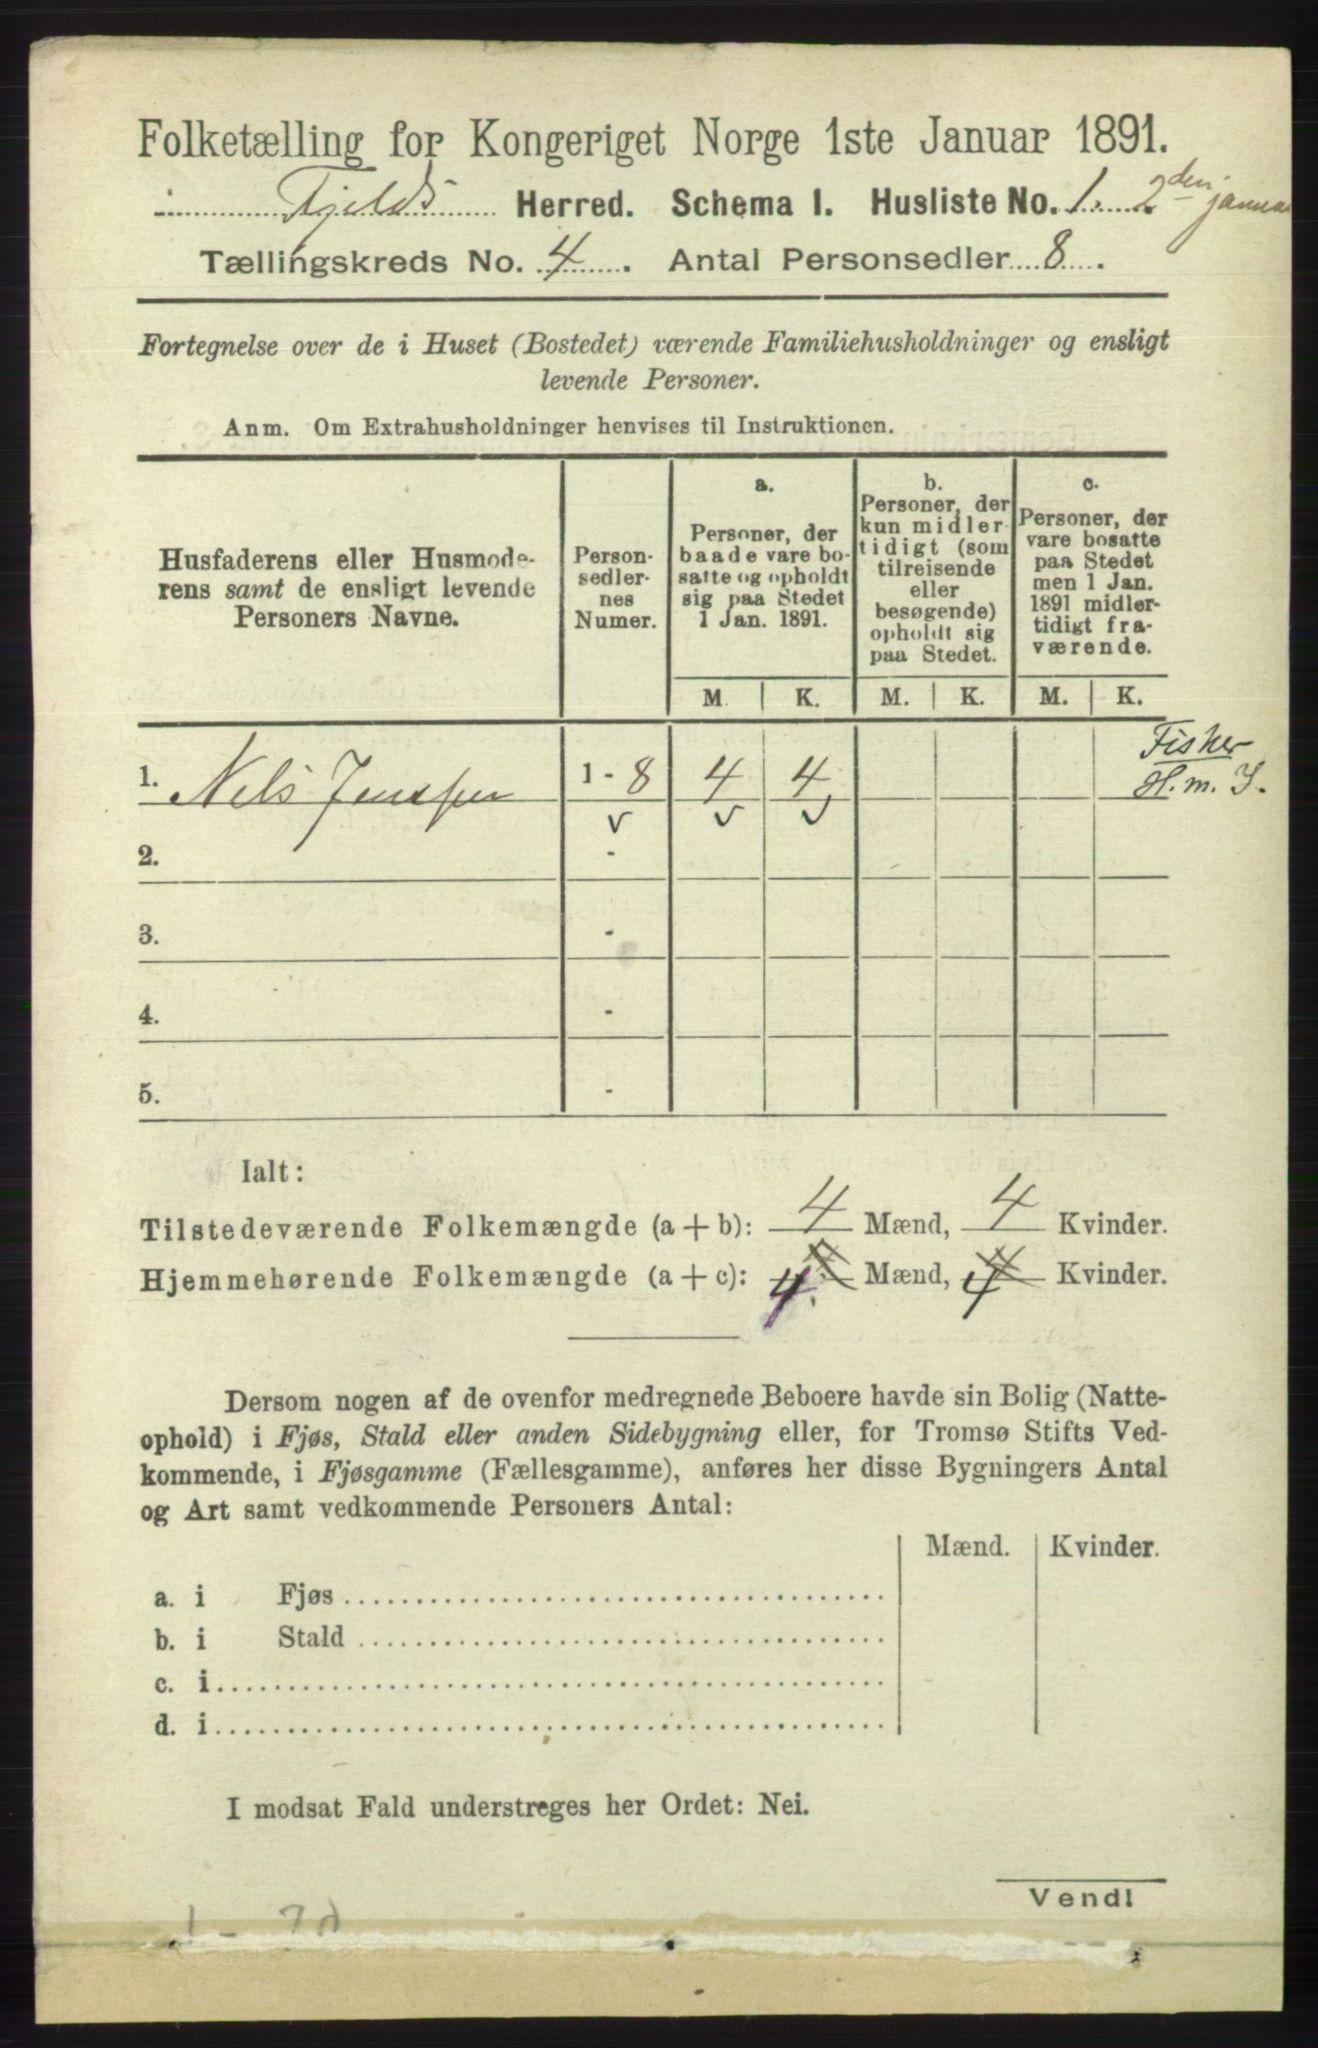 Folketælling for Kongeriget Norge 1ste Januar 1891.
i Fjelds Herred. Schema I. Husliste No. 1. 2den januar
Tællingskreds No. 4. Antal Personsedler 8.
Fortegnelse over de i Huset (Bostedet) værende Familiehusholdninger og ensligt
levende Personer.
Anm. Om Extrahusholdninger henvises til Instruktionen.
Husfaderens eller Husmode-
rens samt de ensligt levende
Personers Navne.
Person-
sedler-
nes
Numer.
a.
Personer, der
baade vare bo-
satte og opholdt
sig paa Stedet
1 Jan. 1891.
b.
Personer, der
kun midler-
tidigt (som
tilreisende
eller
besøgende)
opholdt sig
paa Stedet.
c.
Personer, der
vare bosatte
paa Stedet
men 1 Jan.
1891 midler-
tidigt fra-
værende.
M. K. M. K. M. K.
1. Nels 1 - 8 4 4
Fisker
H. m. J.
2. -
3. -
4. -
5. -
Ialt:
Tilstedeværende Folkemængde (a + b): 4 Mænd, 4 Kvinder.
Hjemmehørende Folkemængde (a + c): 4. Mænd, 4 Kvinder.
Dersom nogen af de ovenfor medregnede Beboere havde sin Bolig (Natte-
ophold) i Fjøs, Stald eller anden Sidebygning eller, for Tromsø Stifts Ved-
kommende, i Fjøsgamme (Fællesgamme), anføres her disse Bygningers Antal
og Art samt vedkommende Personers Antal:
Mænd. Kvinder.
a. i Fjøs
b. i Stald
c. i
d. i
I modsat Fald understreges her Ordet: Nei.
Vend!